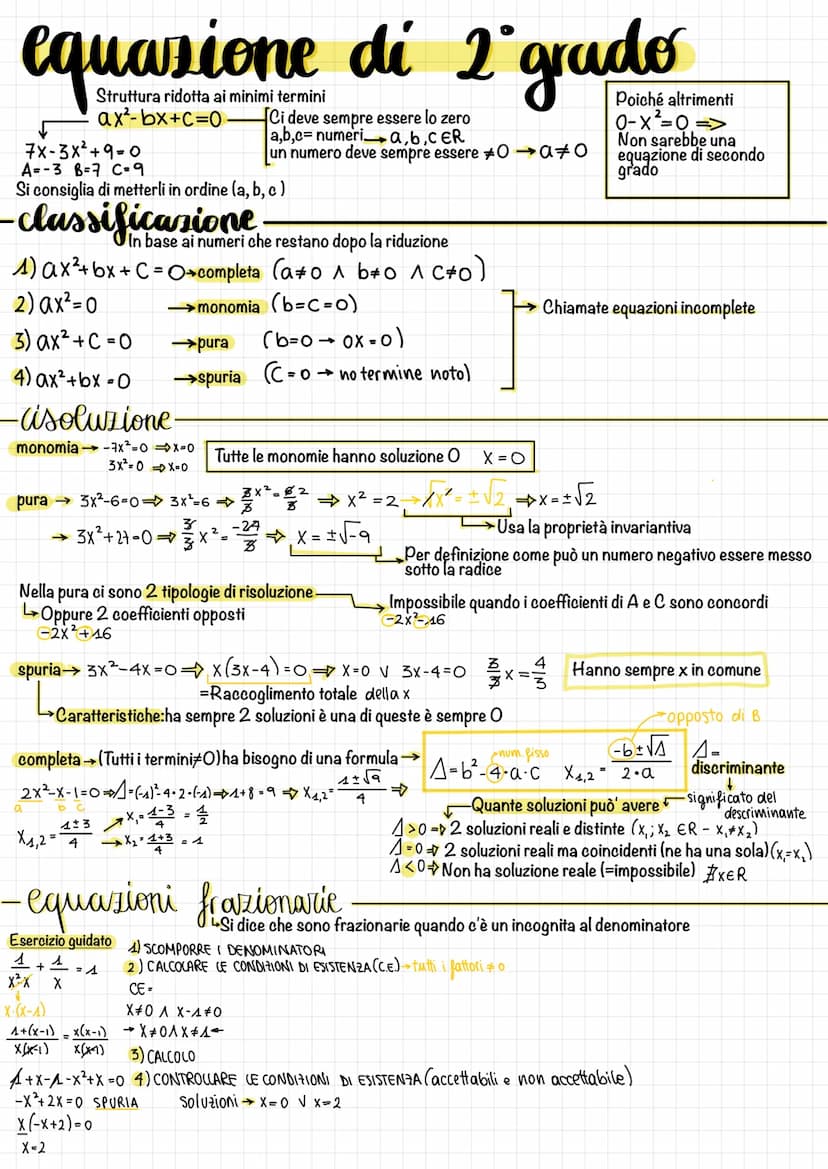 equazione di 2° grado
Struttura ridotta ai minimi termini
ax²-bx+c=0
Ci deve sempre essere lo zero
a,b,c= numeri → a,b,c ∈R
un numero deve sempre essere ≠0 → a≠0
Poiché altrimenti
0-x²=0 =>
Non sarebbe una
equazione di secondo
grado
7x-3x²+9=0
A=-3 B=7 C=9
Si consiglia di metterli in ordine (a, b, c)
classificazione
In base ai numeri che restano dopo la riduzione
1) ax²+bx+c=0 → completa (a≠0 ∧ b≠0 ∧ c≠0)
2) ax²=0 → monomia (b=c=0)
3) ax²+c=0 → pura (b=0 → 0x=0)
4) ax²+bx=0 → spuria (c=0 → no termine noto)
→ Chiamate equazioni incomplete
risoluzione
monomia → -7x²=0 ⇒ x=0
3x²=0 ⇒ x=0
Tutte le monomie hanno soluzione 0 x=0
pura → 3x²-6=0 ⇒ 3x²=6 ⇒ 3/3 x² = 6/3 2 ⇒ x²=2 → √x² = ±√2 ⇒ x=±√2
Usa la proprietà invariantiva
→ 3x²+27=0 ⇒ 3/3 x² = -27/3 ⇒ x=±√-9
Per definizione come può un numero negativo essere messo
sotto la radice
Nella pura ci sono 2 tipologie di risoluzione
Impossibile quando i coefficienti di A e C sono concordi
-2x²-16
Oppure 2 coefficienti opposti
-2x²+16
spuria → 3x²-4x=0 ⇒ x(3x-4)=0 ⇒ x=0 ∨ 3x-4=0 3/3 x = 4/3
Hanno sempre x in comune
=Raccoglimento totale della x
Caratteristiche:ha sempre 2 soluzioni è una di queste è sempre 0
opposto di B
completa → (Tutti i termini≠0) ha bisogno di una formula →
num. fisso
Δ=b²-4·a·c x1,2= -b±√Δ / 2·a
Δ=
discriminante
significato del
descriminante
2x²-x-1=0 ⇒ Δ=(-1)²-4·2·(-1) ⇒ 1+8=9 ⇒ x1,2= 1±√9 / 4 ⇒
a b c
x1,2 = 1±3 / 4
x₁= 1-3 / 4 = 1/2
x₂= 1+3 / 4 = 1
Quante soluzioni può' avere
Δ>0 ⇒ 2 soluzioni reali e distinte (x₁; x₂ ∈R - x₁≠x₂)
Δ=0 ⇒ 2 soluzioni reali ma coincidenti (ne ha una sola) (x₁=x₂)
Δ<0 ⇒ Non ha soluzione reale (=impossibile) ∄x∈R
equazioni frazionarie
Si dice che sono frazionarie quando c'è un incognita al denominatore
Esercizio guidato
1/x²-x + 1/x = 1
x·(x-1)
1+(x-1) / x(x-1) = x(x-1) / x(x-1)
1) SCOMPORRE I DENOMINATORI
2) CALCOLARE LE CONDIZIONI DI ESISTENZA (C.E) → tutti i fattori ≠ 0
CE=
x≠0 ∧ x-1≠0
→ x≠0 ∧ x≠1 ←
3) CALCOLO
1+x-1-x²+x=0
4) CONTROLLARE LE CONDIZIONI DI ESISTENZA (accettabili e non accettabile)
-x²+2x=0 SPURIA
soluzioni → x=0 ∨ x=2
x(-x+2)=0
x=2